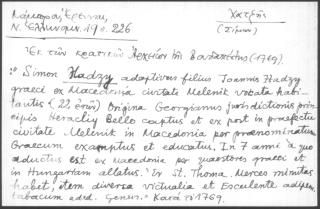 Λάμπρος, Ἔρευναι,
Ν. Ἑλληνομν. 19 σ. 226
Χατζῆς
(Σίμων)
Ἐκ τῶν κρατικῶν Ἀρχείων τῆς Βουδαπέστης (1769).
"Simon Hadzy adoptivus filius Joannis Hadzy
graeci ex Macedonia civitate Melenik vocata habi-
tantis (22 ἐτῶν) Origina Georgianus jurisdictionis prin-
cipis Heraclij Bello captus et ex post in praefectu
civitate Melenik in Macedonia per praenominatum
Graecum exemptus et educatus. In 7 anni a quo
adductus est ex Macedonia per quaestores graeci et
in Hungariam allatus. Ἐν St. Thoma. Merces minutas
habet, item diversa victualia et Esculenta adipem,
tabacum etc. Genus." Κατὰ τὸ 1769.